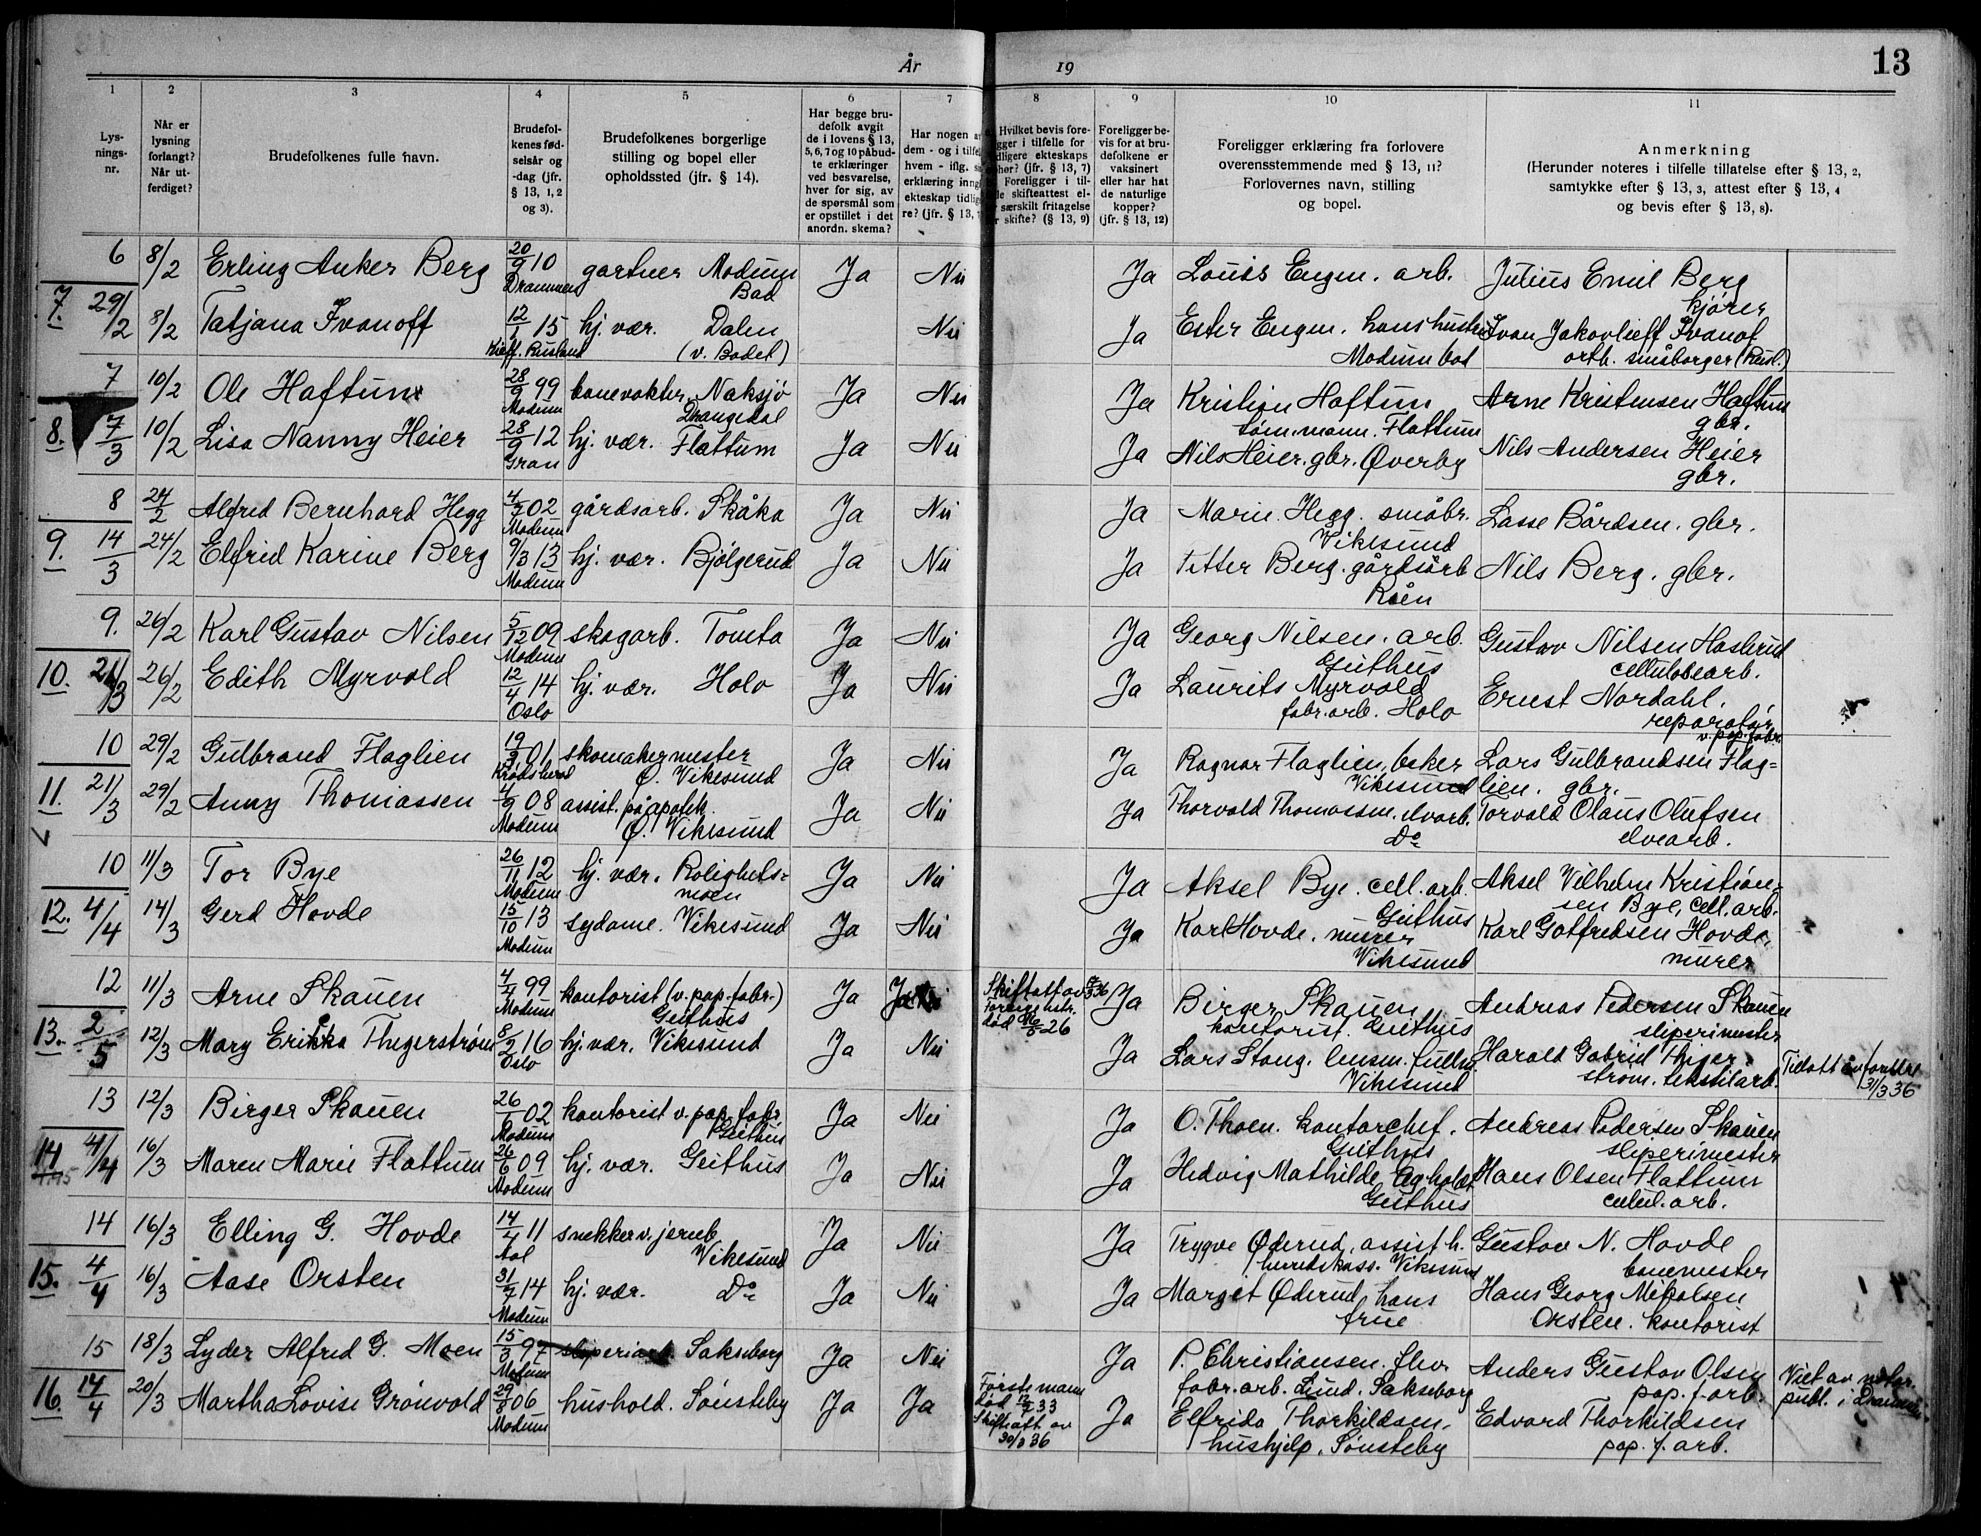 År 19
13
1 2 3 4 5 6 7 8 9 10 11
Lys-
nings-
nr.
Når er
lysning
forlangt?
Når ut-
ferdiget?
Brudefolkenes fulle navn.
Brudefol-
kenes fød-
selsår og
-dag (jfr.
§ 13, 1, 2
og 3).
Brudefolkenes borgerlige
stilling og bopel eller
opholdssted (jfr. § 14).
Har begge bru-
defolk avgit
de i lovens § 13,
5, 6, 7 og 10 påbud-
te erklæringer
ved besvarelse,
hver for sig, av
de spørsmål som
er opstillet i det
anordn. skema?
Har nogen
dem - og i
hvem - iflg.
erklæring
ekteskap
re? (jfr. § 13,
Hvilket bevis fore-
i tilfelle for
ekteskaps
(jfr. § 13, 7)
Foreligger i til-
skifteattest el-
særskilt fritagelse
skifte? (§ 13, 9)
Foreligger be-
vis for at bru-
defolkene er
vaksinert
eller har hat
de naturlige
kopper?
(jfr. § 13, 12)
Foreligger erklæring fra forlovere
overensstemmende med § 13, 11?
Forlovernes navn, stilling
og bopel.
Anmerkning
(Herunder noteres i tilfelle tillatelse efter § 13, 2,
samtykke efter § 13, 3, attest efter § 13, 4
og bevis efter § 13, 8).
6 8/2 Erling Anker Berg 20/9 10 gartner Modum Ja Nei Ja Louis Engen. arb. Julius Emil Berg
Drammen Bad kjører
7. 29/2 8/2 Tatjana Ivanoff 12/1 15 hj. vær. Dalen Nei Ja Ester Engen. hans hustru Ivan Jakovlieff Ivanof
Kieff. Rusland (v. Badet) Modum bad orth. småborger (Rusl.)
7 10/2 Ole Haftum 28/9 99 banevokter Naksjø Ja Nei Ja Kristian Haftum Arne Kristensen Haftum
Modum Drangedal tøm.mann. Flattum gbr.
8. 7/3 10/2 Lisa Nanny Heier 28/9 12 hj. vær. Flattum Ja Nei Ja Nils Heier. gbr. Øverby Nils Andersen Heier
Gran gbr.
8 24/2 Alfred Bernhard Hegg 4/7 02 gårdsarb. Skåka Ja Nei Ja Marie Hegg. småbr. Lasse Bårdsen. gbr.
Modum Vikesund
9. 14/3 24/2 Elfrid Karine Berg 9/3 13 hj. vær. Bjølgerud Ja Nei Ja Petter Berg. gårdsarb Nils Berg. gbr.
Modum
9. 26/2 Karl Gustav Nilsen 5/12 09 skogarb. Tomta Ja Nei Ja Georg Nilsen. arb. Gustav Nilsen Haslerud
Modum Geithus cellulosearb.
10. 21/3 26/2 Edith Myrvold 12/4 14 hj. vær. Holo Ja Nei Ja Laurits Myrvold Ernst Nordahl.
Oslo fabr. arb. Holo reparatør
v. pap. fabr.
10 29/2 Gulbrand Flaglien 19/9 01 skomakermester Ja Nei Ja Ragnar Flaglien, baker Lars Gulbrandsen Flag=
Krødsherad Ø. Vikesund Vikesund lien. gbr.
11. 21/3 29/2 Anny Thomassen 4/9 08 assist. på apotek Ja Nei Ja Thorvald Thomassen. elvarb. Torvald Olaus Olufsen
Modum Ø. Vikesund Do elvearb.
10 11/3 Tor Bye 26/11 12 hj. vær. Rolighets= Ja Nei Ja Aksel Bye. cell. arb. Aksel Vilhelm Kristian=
Modum moen Geithus sen Bye, cell. arb.
12. 4/4 14/3 Gerd Hovde 15/10 13 sydame. Vikesund Ja Nei Ja Karl Hovde. murer Karl Gotfredsen Hovde
Modum Vikesund murer
12 11/3 Arne Skauen 4/7 99 kontorist (v. pap. fabr.) Ja Skiftatt av Ja Birger Skauen Andreas Pedersen Skauen
Modum Geithus død 26 kontorist. Geithus sliperimester
13. 2/5 12/3 Mary Erikka Thegerstrøm 8/2 16 hj. vær. Vikesund Ja Nei Ja Lars Stang. lensm. fullm. Harald Gabriel Theger
Oslo Vikesund strøm. tekstilarb. Tillatt av foreldre
31/3 36
13 12/3 Birger Skauen 26/1 02 kontorist v. pap. fabr. Ja Nei Ja O. Thoen. kontorchef. Andreas Pedersen Skauen
Modum Geithus Geithus sliperimester
14 4/4 16/3 Maren Marie Flattum 26/6 09 hj. vær. Geithus Ja Nei Ja Hedvig Mathilde Agholdt Hans Olsen Flattum
Modum Geithus cellul. arb.
14 16/3 Elling G. Hovde 14/4 11 snekker v. jernb Ja Nei Ja Trygve Øderud, assist h. Gustav N. Hovde
Aal Vikesund herredskass. Vikesund banemester
15. 4/4 16/3 Aase Orsten 31/7 14 hj. vær. Do Ja Nei Ja Margit Øderud, hans Hans Georg Mikalsen
Modum frue Orsten. kontorist
15 18/3 Lyder Alfred G. Moen 15/3 97 sliperiarb. Sakseborg Ja Nei Ja P. Christiansen. Anders Gustav Olsen
Modum fabr. arb. Lund. Sakseborg pap. f. arb. Viet av notar.
publ. i Drammen
16. 14/4 20/3 Martha Lovise Grønvold 29/8 06 hushold. Sønsteby Ja Ja Første mann Ja Elfrida Thorkildsen. Edvard Thorkildsen
Modum død 33 hushjelp, Sønsteby pap. f. arb.
Skiftatt. av
30/3 36